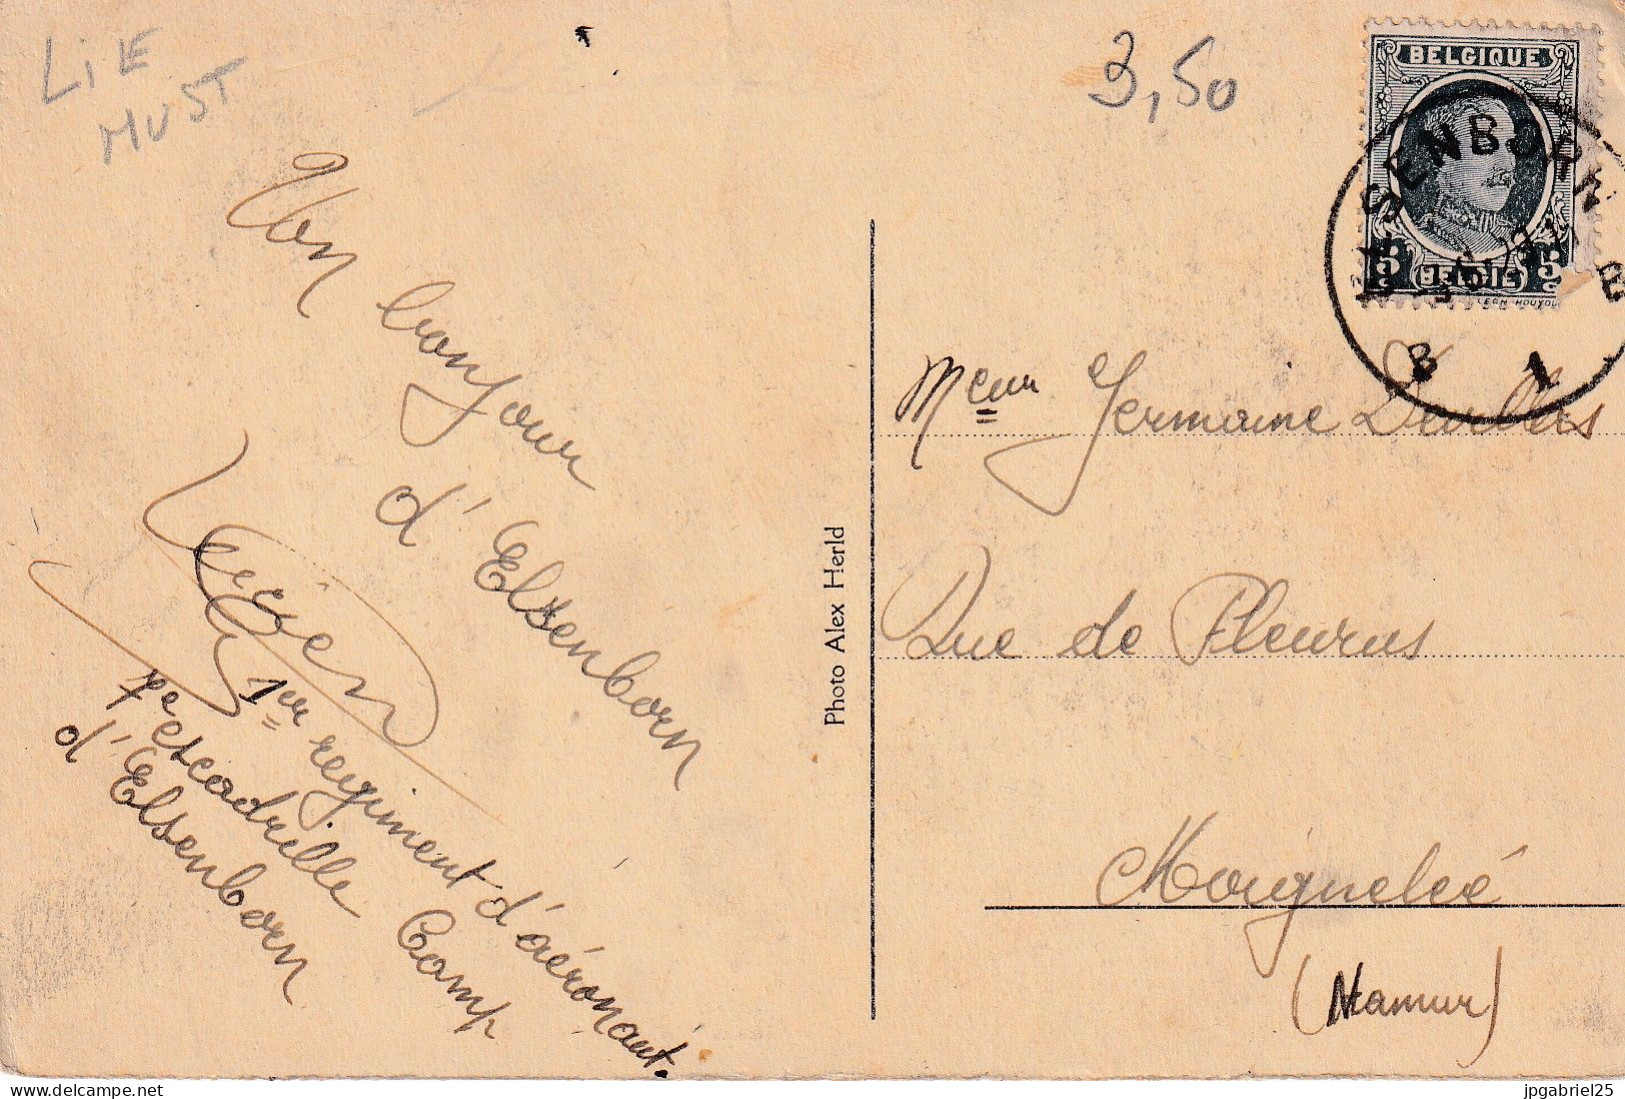 LiE
MUST
3,50
BELGIQUE
5 BELGIE 5
ELSENBORN
B 1
Un bonjour
d'Elsenborn
1er regiment d'aéronaut.
7e escadrille Camp
d'Elsenborn
Photo Alex Herld
Melle Germaine
Rue de Fleurus
Moignelée
(Namur)
delcampe.net
jpgabriel25